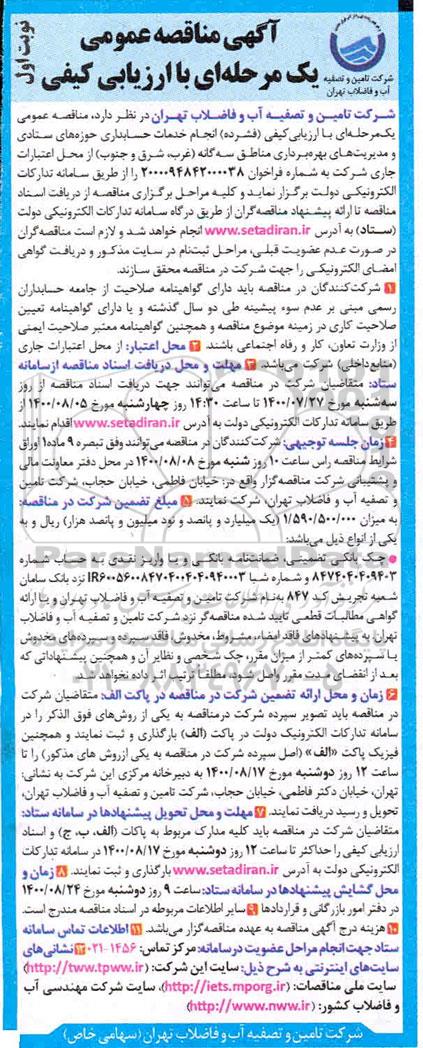 آگهی مناقصه عمومی
یک مرحله‌ای با ارزیابی کیفی
نوبت اول
شرکت تامین و تصفیه
آب و فاضلاب تهران
شرکت تامین و تصفیه آب و فاضلاب تهران در نظر دارد، مناقصه عمومی
یک‌مرحله‌ای با ارزیابی‌کیفی (فشرده) انجام خدمات حسابداری حوزه‌های ستادی
و مدیریت‌های بهره‌برداری مناطق سه‌گانه (غرب، شرق و جنوب) از محل اعتبارات
جاری شرکت به شماره فراخوان ۲۰۰۰۰۹۴۸۴۲۰۰۰۰۳۸ را از طریق سامانه تدارکات
الکترونیکی دولت برگزار نماید و کلیه مراحل برگزاری مناقصه از دریافت اسناد
مناقصه تا ارائه پیشنهاد مناقصه‌گران از طریق درگاه سامانه تدارکات الکترونیکی دولت
(ستاد) به آدرس www.setadiran.ir انجام خواهد شد و لازم است مناقصه‌گران
در صورت عدم عضویت قبلی، مراحل ثبت‌نام در سایت مذکور و دریافت گواهی
امضای الکترونیکی را جهت شرکت در مناقصه محقق سازند.
۱ شرکت‌کنندگان در مناقصه باید دارای گواهینامه صلاحیت از جامعه حسابداران
رسمی مبنی بر عدم سوء پیشینه طی دو سال گذشته و یا دارای گواهینامه تعیین
صلاحیت کاری در زمینه موضوع مناقصه و همچنین گواهینامه معتبر صلاحیت ایمنی
از وزارت تعاون، کار و رفاه اجتماعی باشند. ۲ محل اعتبار: از محل اعتبارات جاری
(منابع‌داخلی) شرکت می‌باشد. ۳ مهلت و محل دریافت اسناد مناقصه ازسامانه
ستاد: متقاضیان شرکت در مناقصه می‌توانند جهت دریافت اسناد مناقصه از روز
سه‌شنبه مورخ ۱۴۰۰/۰۷/۲۷ تا ساعت ۱۴:۳۰ روز چهارشنبه مورخ ۱۴۰۰/۰۸/۰۵ از
طریق سامانه تدارکات الکترونیکی دولت به آدرس www.setadiran.ir اقدام نمایند.
۴ زمان جلسه توجیهی: شرکت‌کنندگان در مناقصه می‌توانند وفق تبصره ۹ ماده۱ اوراق
شرایط مناقصه راس ساعت ۱۰ روز شنبه مورخ ۱۴۰۰/۰۸/۰۸ در محل دفتر معاونت مالی
و پشتیبانی شرکت مناقصه‌گزار واقع در: خیابان فاطمی، خیابان حجاب، شرکت تامین
و تصفیه آب و فاضلاب تهران، شرکت نمایند. ۵ مبلغ تضمین شرکت در مناقصه:
به میزان ۱/۵۹۰/۵۰۰/۰۰۰ (یک میلیارد و پانصد و نود میلیون و پانصد هزار) ریال و به
یکی از انواع ذیل می‌باشد:
● چک بانکی تضمینی، ضمانت‌نامه بانکی و یا واریز نقدی به حساب شماره
۸۴۷۴۰۴۰۴۰۹۴۰۳ و شماره شبا IR۶۰۰۵۶۰۰۸۴۷۰۴۰۰۴۰۴۰۹۴۰۰۳ نزد بانک سامان
شعبه تجریش کد ۸۴۷ به‌نام شرکت تامین و تصفیه آب و فاضلاب تهران و یا ارائه
گواهی مطالبات قطعی تایید شده مناقصه‌گر نزد شرکت تامین و تصفیه آب و فاضلاب
تهران. به پیشنهادهای فاقد امضاء، مشروط، مخدوش، فاقد سپرده و سپرده‌های مخدوش
یا سپرده‌های کمتر از میزان مقرر، چک شخصی و نظایر آن و همچنین پیشنهاداتی که
بعد از انقضای مدت مقرر واصل شود، مطلقاً ترتیب اثر داده نخواهد شد.
۶ زمان و محل ارائه تضمین شرکت در مناقصه در پاکت الف: متقاضیان شرکت
در مناقصه باید تصویر سپرده شرکت درمناقصه به یکی از روش‌های فوق الذکر را در
سامانه تدارکات الکترونیک دولت در پاکت (الف) بارگذاری و ثبت نمایند و همچنین
فیزیک پاکت «الف» (اصل سپرده شرکت در مناقصه به یکی ازروش های مذکور) را تا
ساعت ۱۲ روز دوشنبه مورخ ۱۴۰۰/۰۸/۱۷ به دبیرخانه مرکزی این شرکت به نشانی:
تهران، خیابان دکتر فاطمی، خیابان حجاب، شرکت تامین و تصفیه آب و فاضلاب تهران،
تحویل و رسید دریافت نمایند. ۷ مهلت و محل تحویل پیشنهادها در سامانه ستاد:
متقاضیان شرکت در مناقصه باید کلیه مدارک مربوط به پاکات (الف، ب، ج) و اسناد
ارزیابی کیفی را حداکثر تا ساعت ۱۲ روز دوشنبه مورخ ۱۴۰۰/۰۸/۱۷ در سامانه تدارکات
الکترونیکی دولت به آدرس www.setadiran.ir بارگذاری و ثبت نمایند. ۸ زمان و
محل گشایش پیشنهادها در سامانه ستاد: ساعت ۹ روز دوشنبه مورخ ۱۴۰۰/۰۸/۲۴
در دفتر امور بازرگانی و قراردادها ۹ سایر اطلاعات مربوطه در اسناد مناقصه مندرج است.
۱۰ هزینه درج آگهی مناقصه به عهده مناقصه‌گزار می‌باشد. ۱۱ اطلاعات تماس سامانه
ستاد جهت انجام مراحل عضویت در سامانه: مرکز تماس: ۱۴۵۶-۰۲۱ ۱۲ نشانی‌های
سایت‌های اینترنتی به شرح ذیل: سایت این شرکت: (http://tww.tpww.ir)
سایت ملی مناقصات: (http://iets.mporg.ir)، سایت شرکت مهندسی آب
و فاضلاب کشور: (http://www.nww.ir)
شرکت تامین و تصفیه آب و فاضلاب تهران (سهامی خاص)